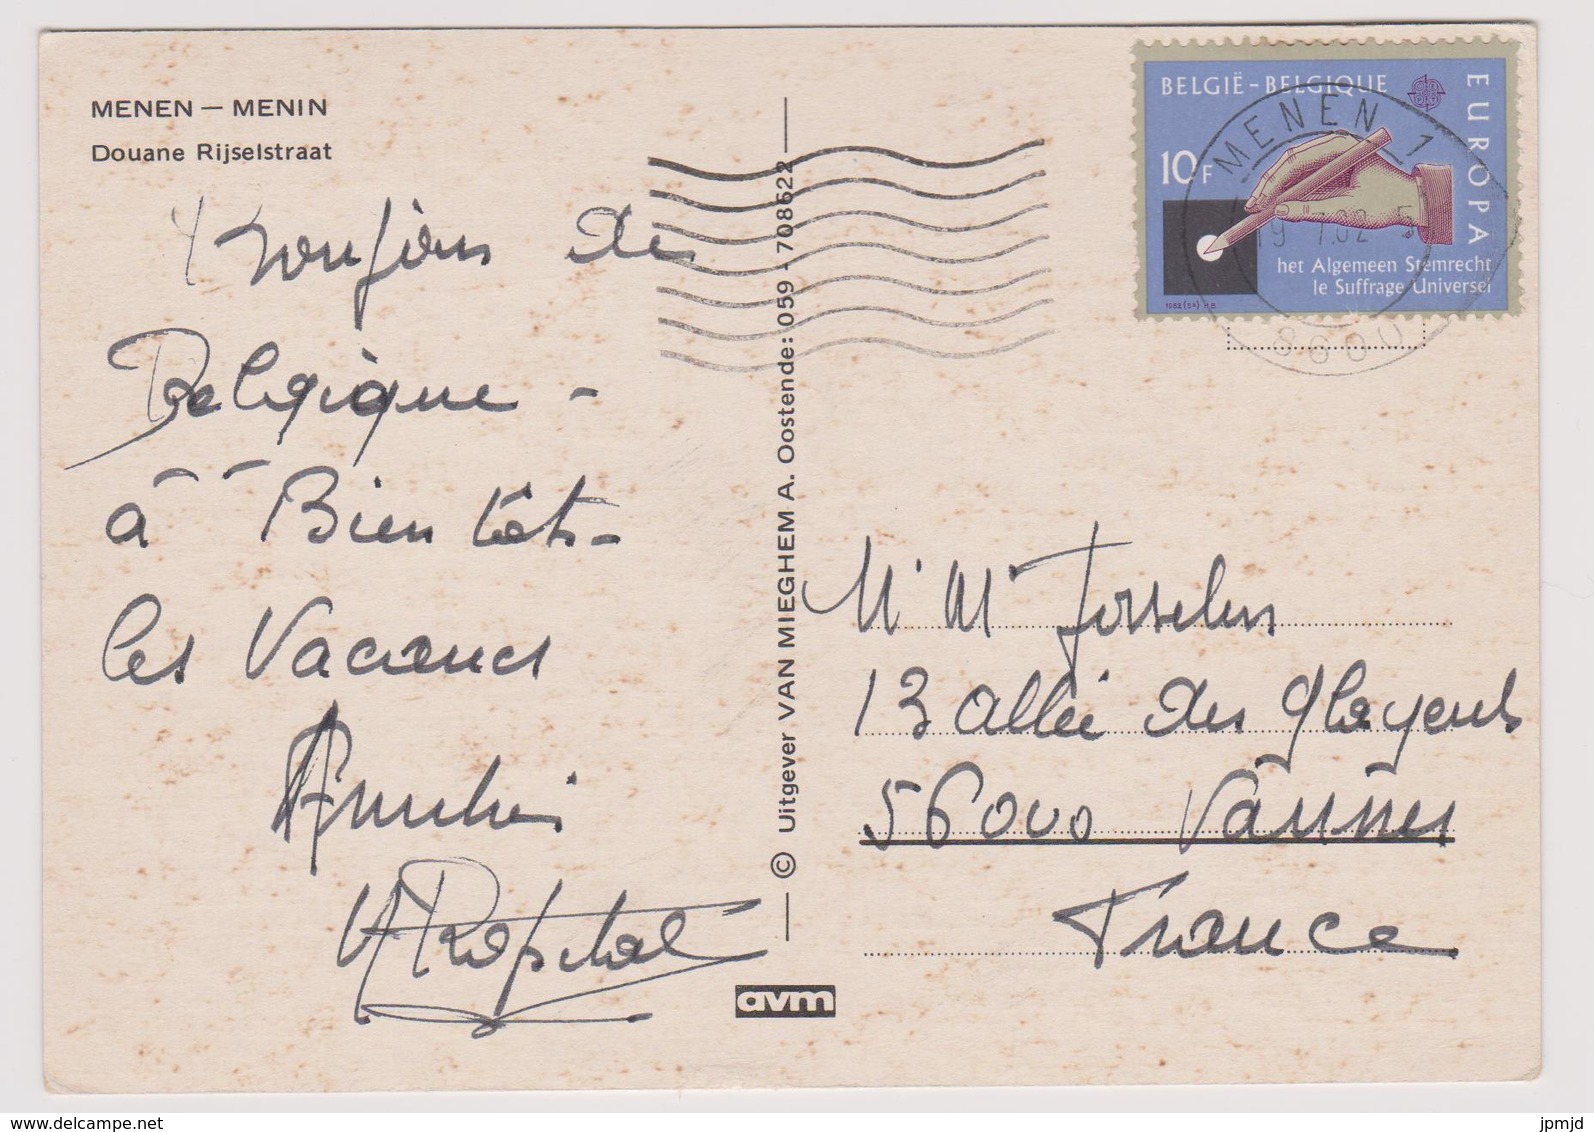 MENEN — MENIN
Douane Rijselstraat
Toujours de
Belgique -
à Bientôt -
les Vacances
Amitiés
© Uitgever VAN MIEGHEM A. Oostende: 059 - 708622
avm
BELGIË-BELGIQUE
EUROPA
10F
het Algemeen Stemrecht
le Suffrage Universel
MENEN 1
8600
13 allée des glayeuls
56000 Vannes
France
jpmjd